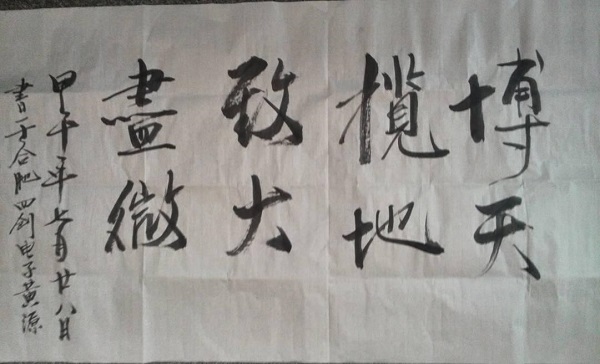 博天
揽地
致大
盡微
甲午年七月廿八日
書于合肥四創电子黄源